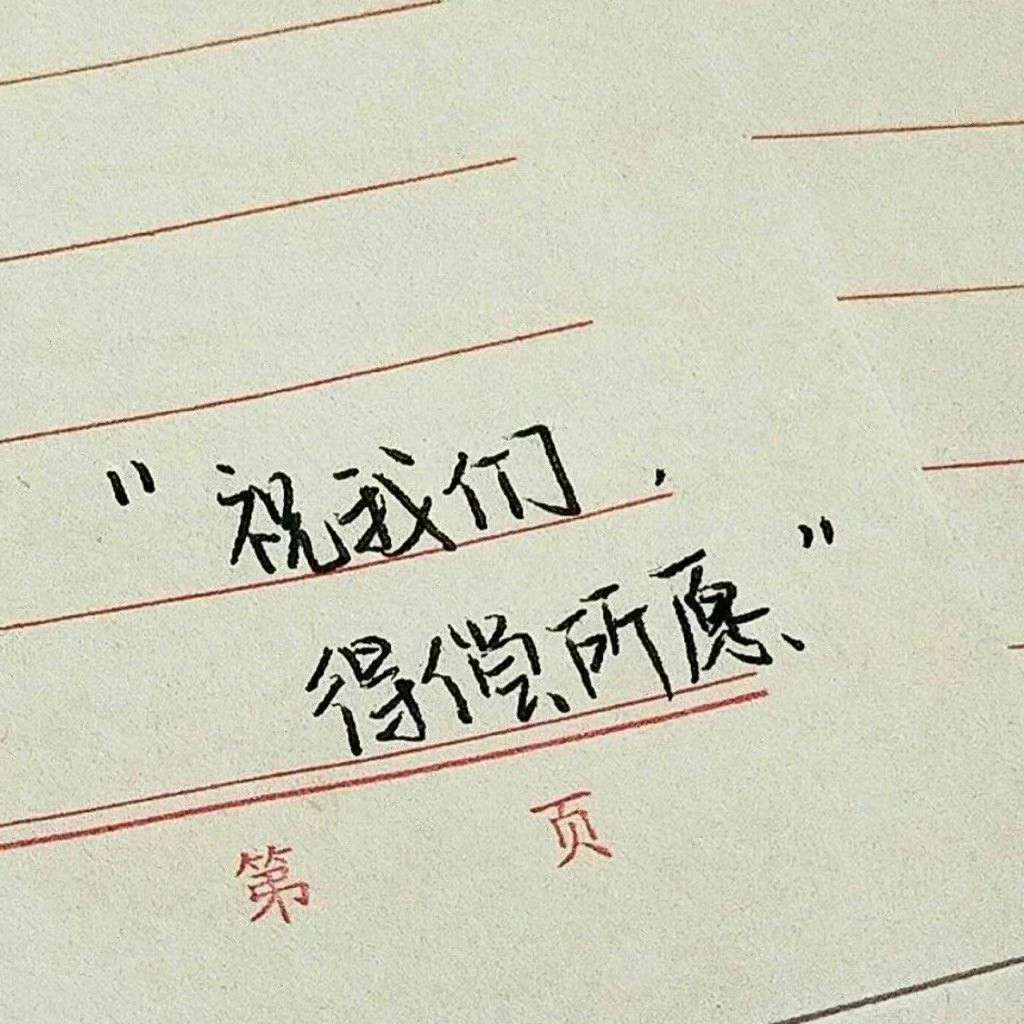 “祝我们,
得偿所愿”
第 页